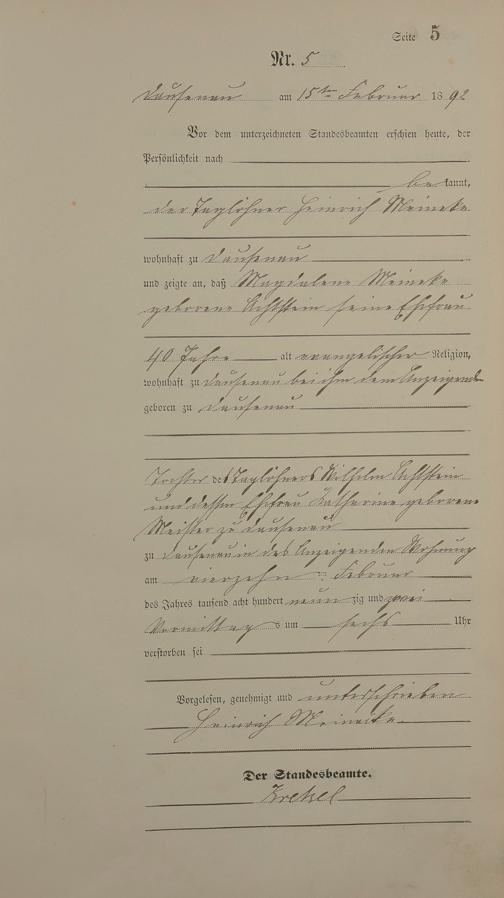 Seite 5
Nr. 5
Dausenau am 15ten Februar 1892
Vor dem unterzeichneten Standesbeamten erschien heute, der
Persönlichkeit nach
be kannt,
der Taglöhner Heinrich Meineke
wohnhaft zu Dausenau
und zeigte an, daß Magdalena Meineke
geborene seine Ehefrau
40 Jahre alt evangelischer Religion,
wohnhaft zu Dausenau bei ihm dem Anzeigenden
geboren zu Dausenau
Tochter des Taglöhners Wilhelm
und dessen Ehefrau Katharine geborene
Meister zu Dausenau
zu Dausenau in des Anzeigenden Wohnung
am vierzehn Februar
des Jahres tausend acht hundert neun zig und zwei
Vormittag s um sechs Uhr
verstorben sei
Vorgelesen, genehmigt und unterschrieben
Heinrich Meinecke
Der Standesbeamte.